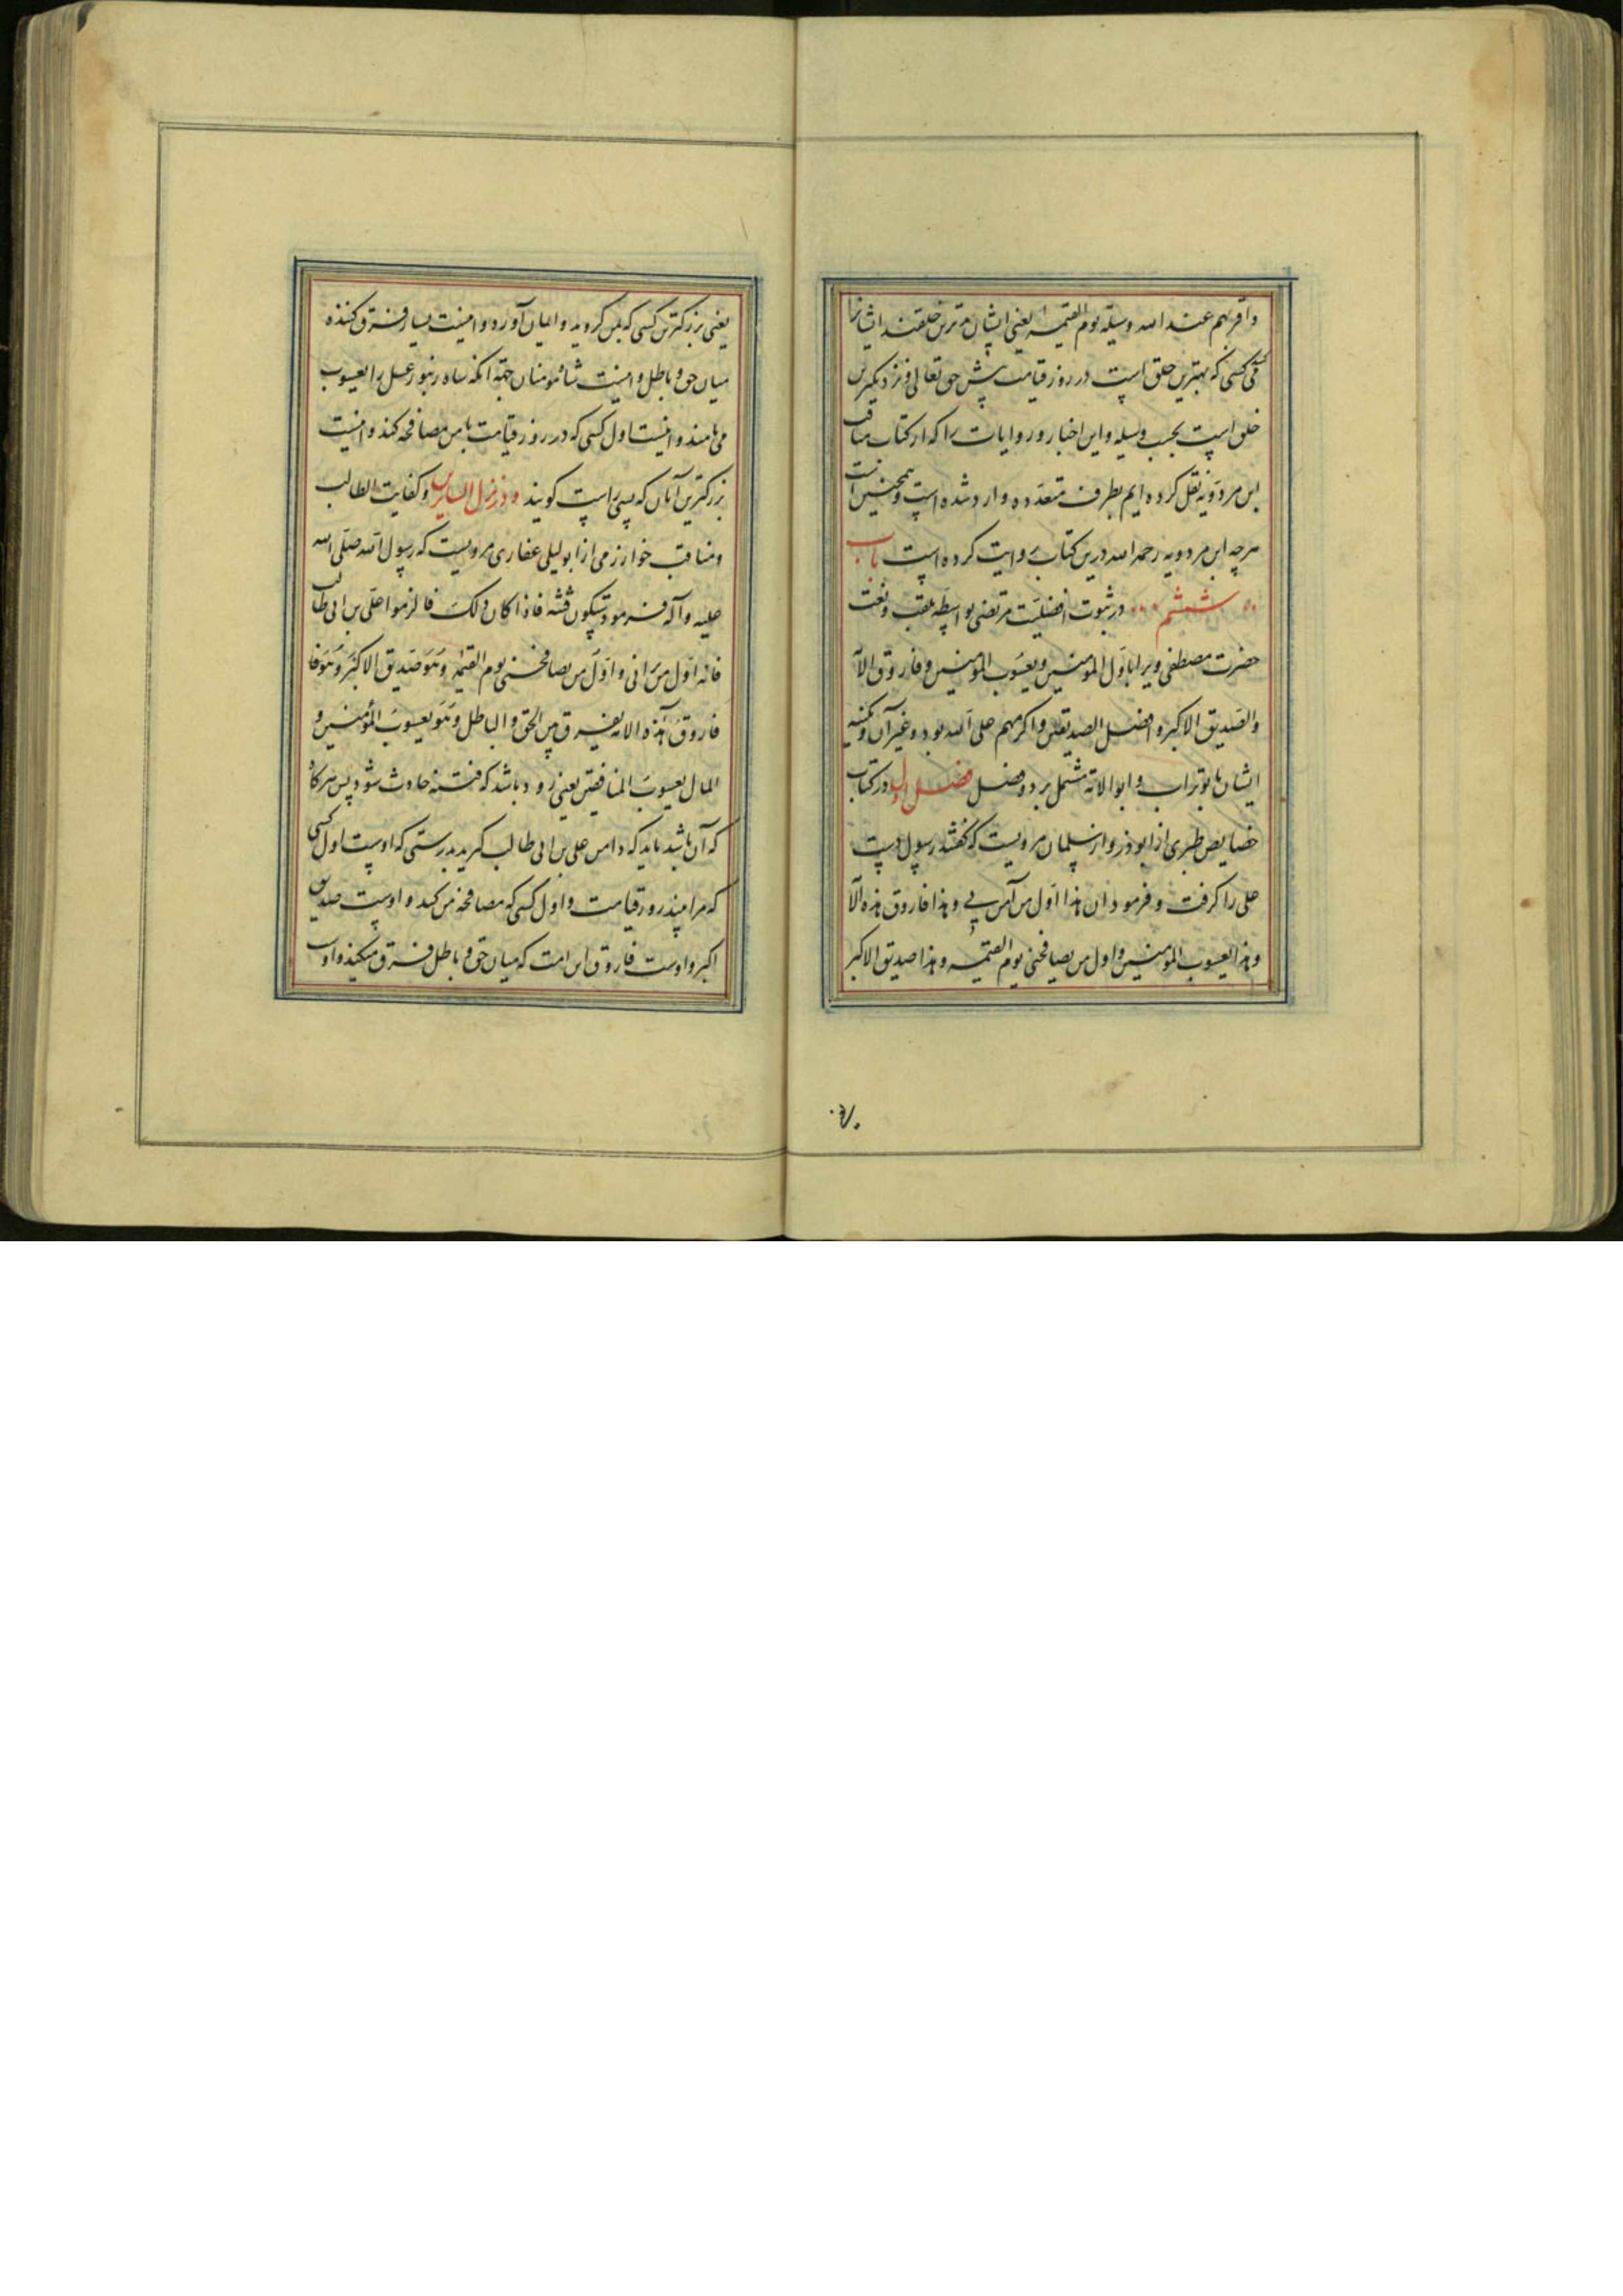 واقربهم عند الله وسیلة یوم القیمه یعنی ایشان بدترین خلقند ایشانرا
کسی که بهترین خلق است در روز قیامت پیش حق تعالی و نزدیکترین
خلق است بحسب وسیله و این اخبار و روایات را که از کتاب مناقب
ابن مردویه نقل کرده ایم بطرف متعدده وارد شده است و همچنین است
هرچه ابن مردویه رحمه الله درین کتاب روایت کرده است باب
ششم در ثبوت افضلیت مرتضی بواسطه لقب و نعت
حضرت مصطفی ویرا باول المومنین و یعسوب المومنین و فاروق الا
والصدیق الاکبر و افضل الصدیقین و اکرمهم علی الله بود و غیر آن و کنیه
ایشان بابوتراب و ابوالائمه مشتمل بر دو فصل فصل اول در کتاب
خصایص طبری از ابوذر و از سلمان مرویست که گفتند رسول دست
علی را گرفت و فرمود ان هذا اول من آمن بی و هذا فاروق هذه الا
وهذا یعسوب المومنین و اول من یصافحنی یوم القیمه و هذا صدیق الاکبر
یعنی بزرکترین کسی که بمن کروید و ایمان آورد و اینست بسیار فرق کننده
میان حق و باطل و اینست شاه مومنان جهة آنکه شاه زنبور عسل را یعسوب
می نامند و اینست اول کسی که در روز قیامت با من مصافحه کند و اینست
بزرکترین آنان که بسی راست کویند و در نزل السایرین و کفایت الطالب
و مناقب خوارزمی از ابولیلی غفاری مرویست که رسول الله صلی الله
علیه وآله فرمود ستکون فتنه فاذا کان ذلک فالزموا علی بن ابی طالب
فانه اول من یرانی و اول من یصافحنی یوم القیمه و هو صدیق الاکبر و هو فا
فاروق هذه الامه یفرق بین الحق والباطل و هو یعسوب المؤمنین و
المال یعسوب المنافقین یعنی زود باشد که فتنه حادث شود پس هرکاه
که آن باشد باید که دامن علی بن ابی طالب کیرید بدرستی که اوست اول کسی
که مرا بیند روز قیامت و اول کسی که مصافحه من کند و اوست صدیق
اکبر و اوست فاروق این امت که میان حق و باطل فرق میکند و اوست